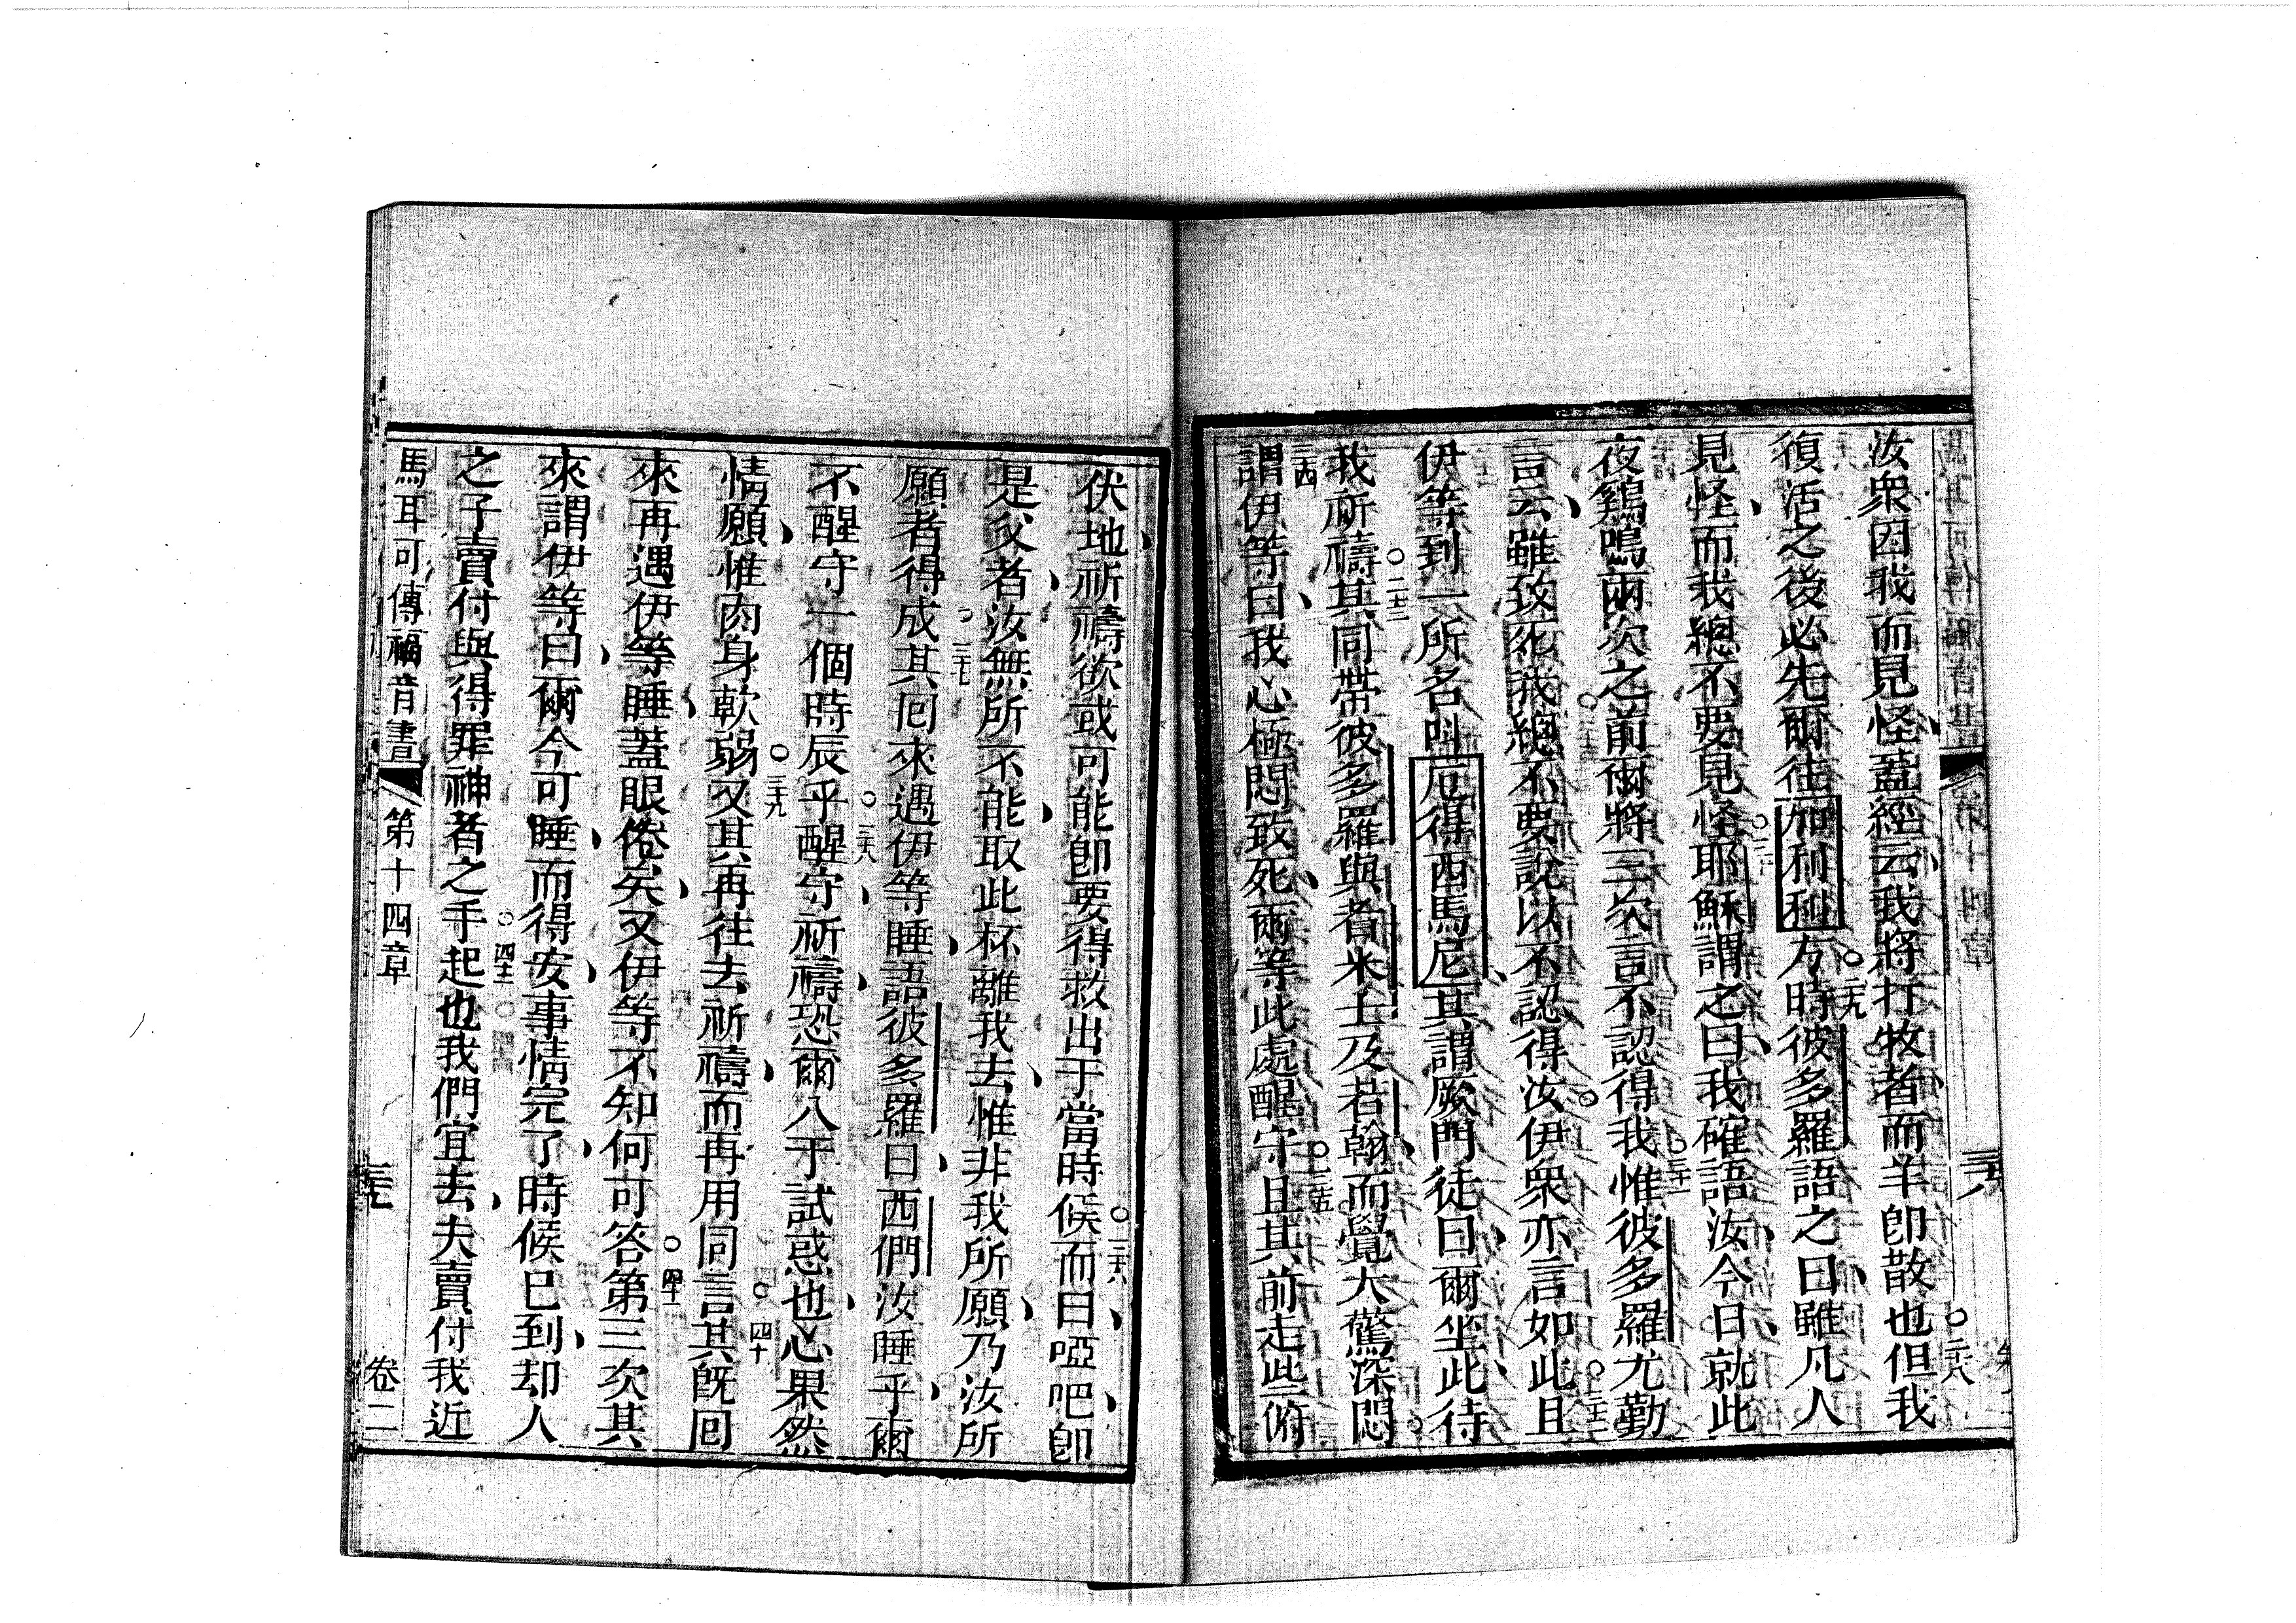 汝衆因我而見怪蓋經云我將打牧者而羊卽散也○二十八但我
復活之後必先爾往加利利方○二十九時彼多羅語之曰雖凡人
見怪而我總不要見怪○三十耶穌謂之曰我確語汝今日就此
夜鷄鳴兩次之前爾將三次言不認得我○三十一惟彼多羅尤勤
言云雖致死我總不要說以不認得汝伊衆亦言如此○三十二且
伊等到一所名呌厄得西馬尼其謂厥門徒曰爾坐此待
我祈禱○三十三其同帶彼多羅與者米士及若翰而覺大驚深悶
三十四謂伊等曰我心極悶致死爾等此處醒守○三十五且其前走些俯
伏地祈禱欲或可能卽要得救出于當時候○三十六而曰啞吧卽
是父者汝無所不能取此杯離我去惟非我所願乃汝所
願者得成○三十七其囘來遇伊等睡語彼多羅曰西們汝睡乎爾
不醒守一個時辰乎○三十八醒守祈禱恐爾入于試惑也心果然
情願惟肉身軟弱○三十九又其再往去祈禱而再用同言○四十其旣囘
來再遇伊等睡蓋眼倦矣又伊等不知何可答○四十一第三次其
來謂伊等曰爾今可睡而得安事情完了時候已到却人
之子賣付與得罪神者之手○四十二起也我們宜去夫賣付我近
馬耳可傳福音書 第十四章 三十九 卷二